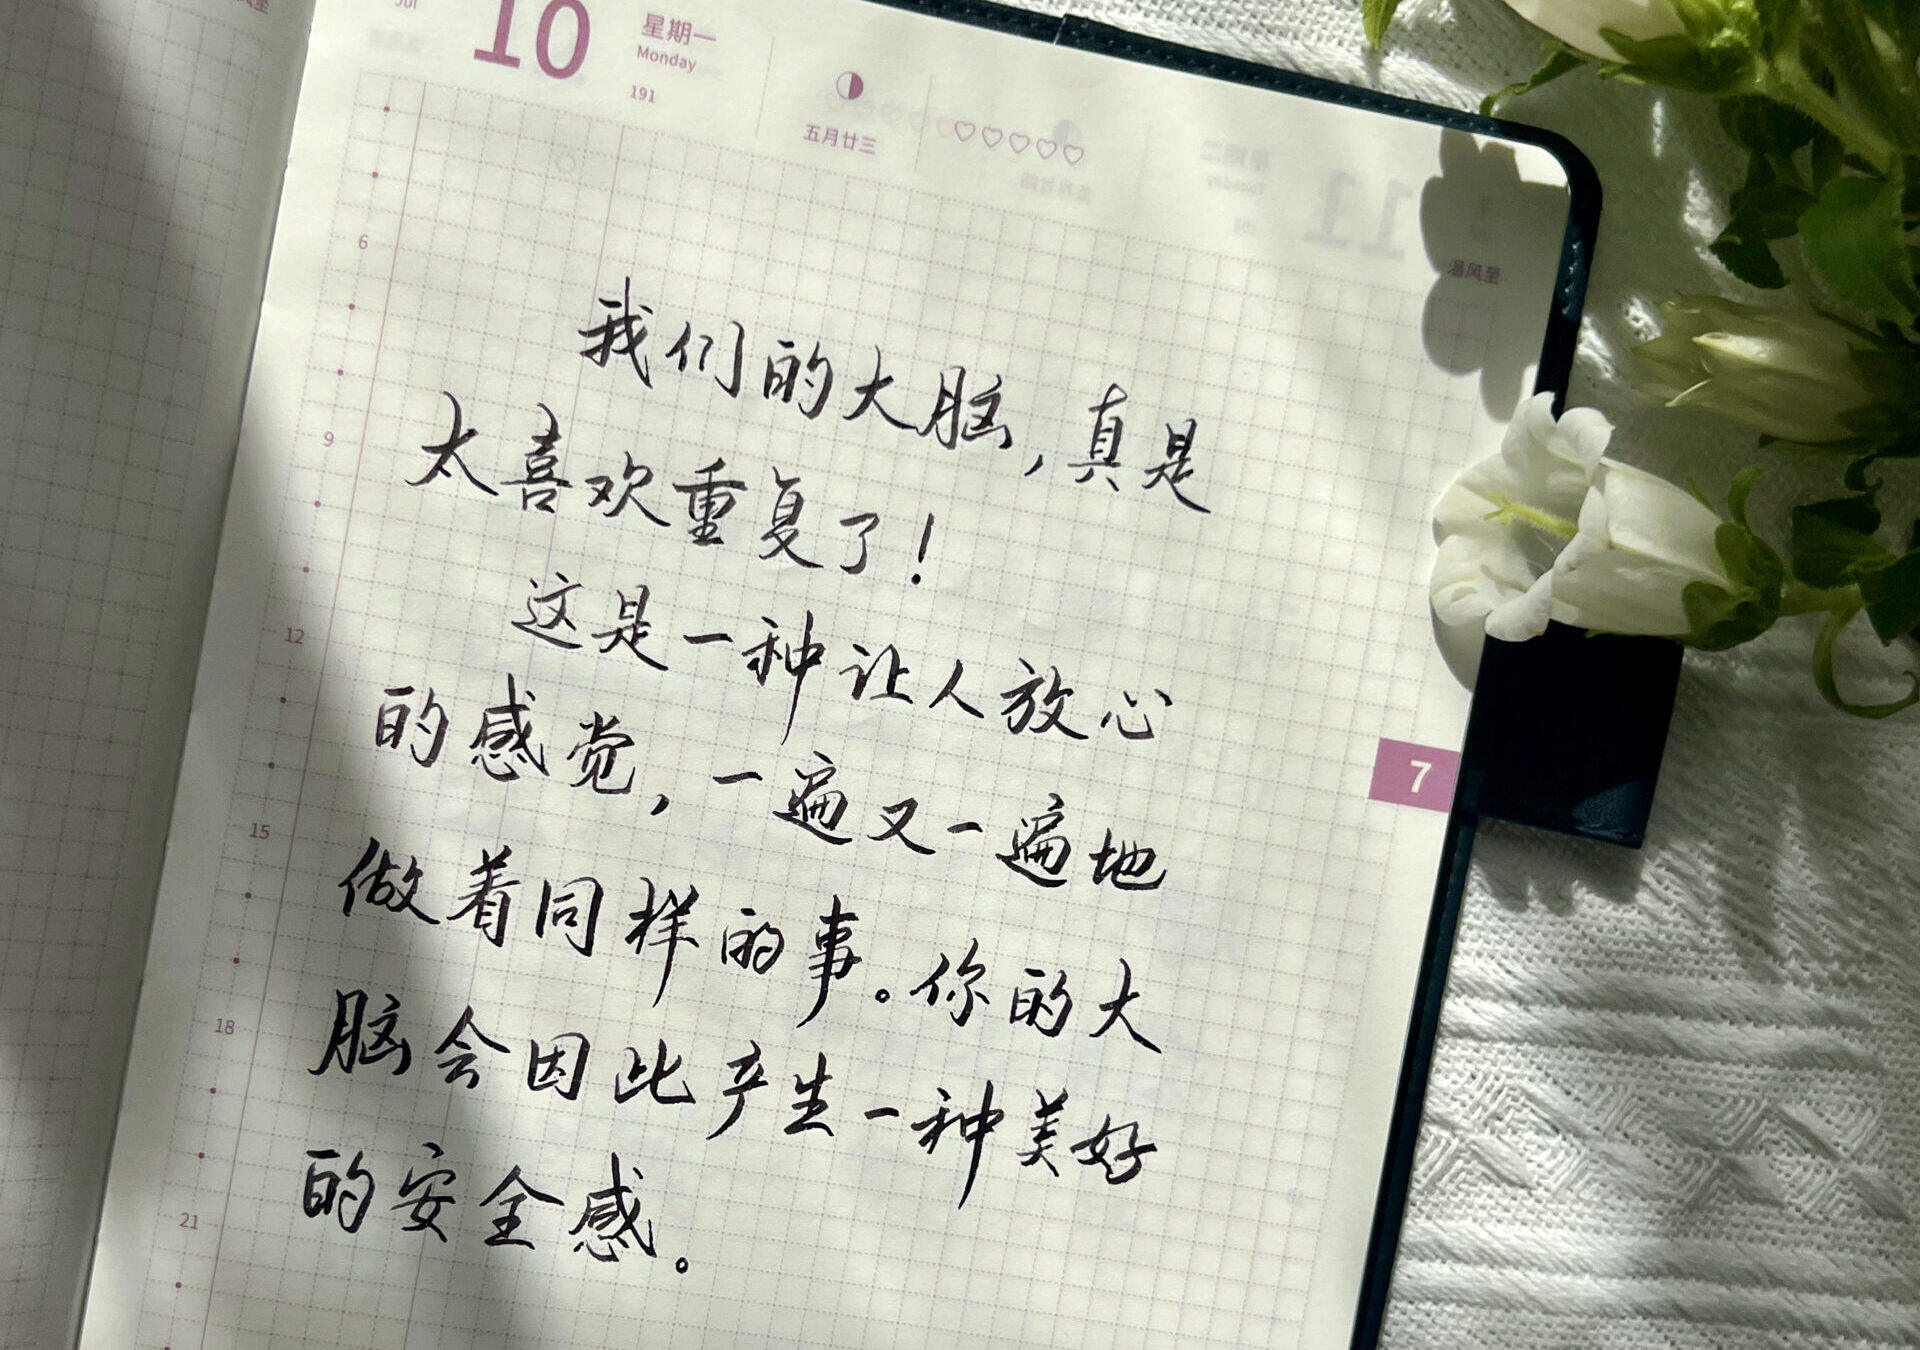 Jul
10
星期一
Monday
191
五月廿三
♡♡♡♡♡
温风至
6
我们的大脑，真是
太喜欢重复了！
9
这是一种让人放心
12
的感觉，一遍又一遍地
7
15
做着同样的事。你的大
18
脑会因此产生一种美好
的安全感。
21